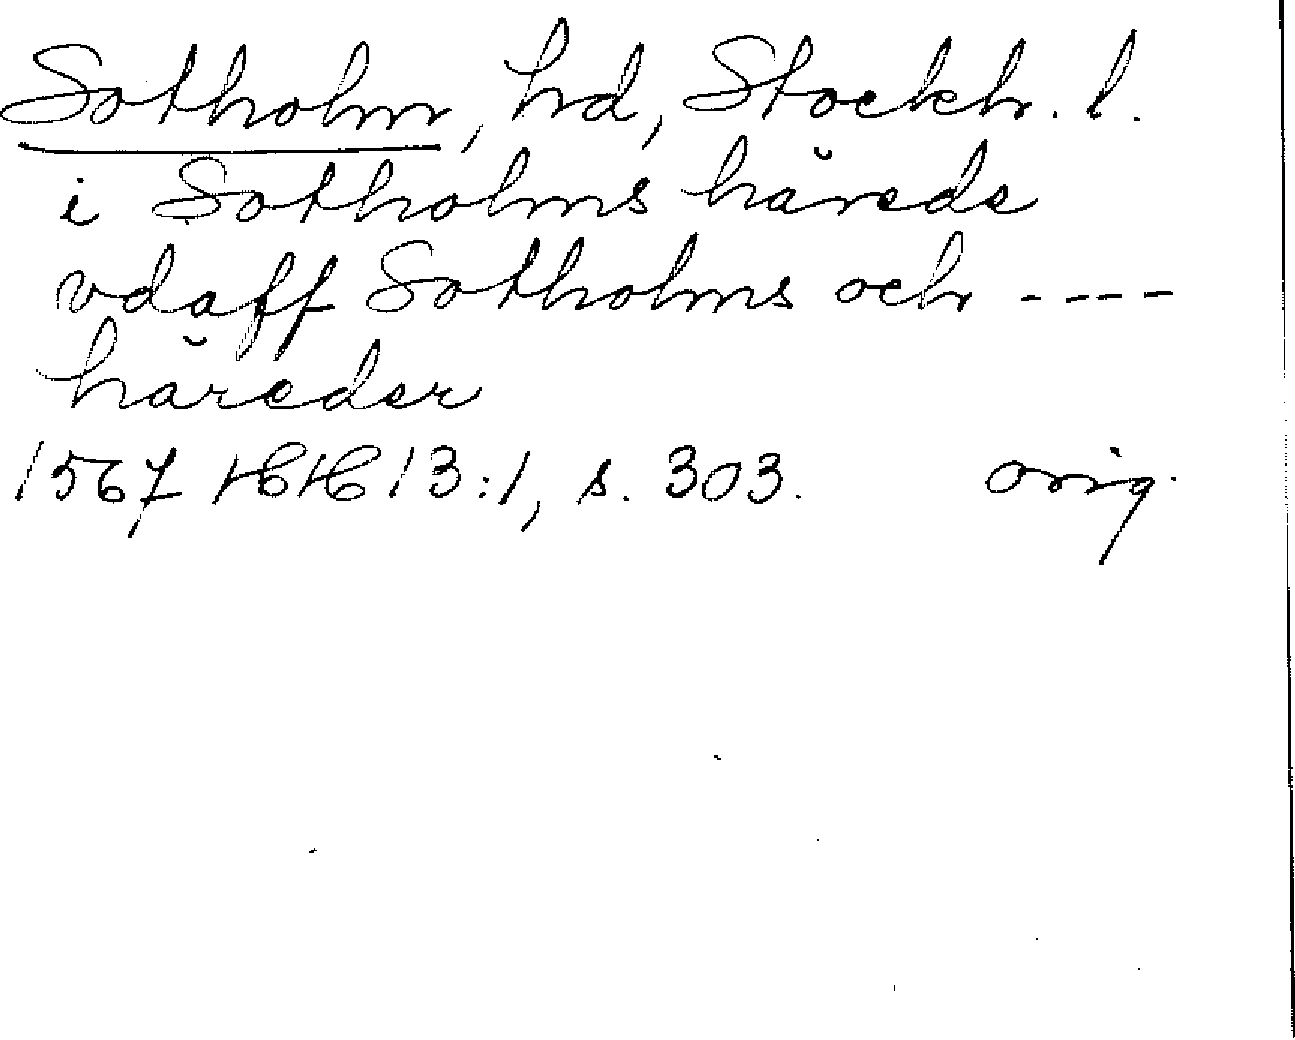 Sotholm, hd, Stockh. l.
i Sotholms hărede
vdaff Sotholms och ----
hăreder
1567 HH 13:1, s. 303. orig.